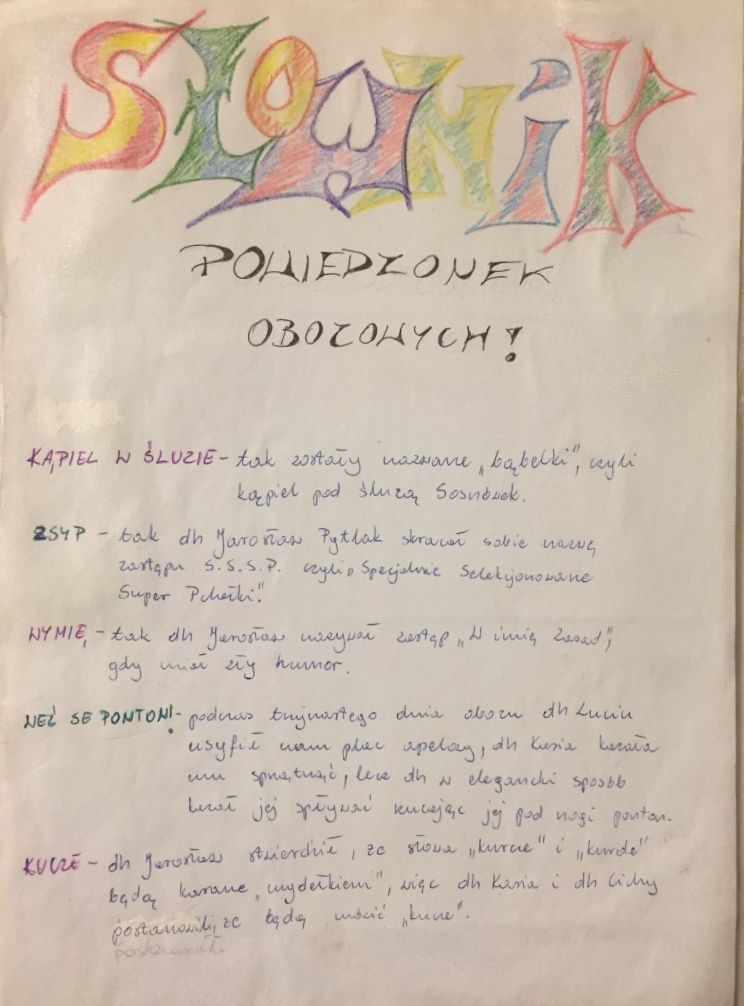 SŁOWNIK
POWIEDZONEK
OBOZOWYCH!
KĄPIEL W ŚLUZIE - tak zostały nazwane „bąbelki", czyli
kąpiel pod śluzą Sosnówek.
ZSYP - tak dh Jarosław Pytlak skracał sobie nazwę
zastępu S.S.S.P. czyli „Specjalnie Selekcjonowane
Super Pchełki".
WYMIĘ, - tak dh Jarosław nazywał zastęp „W imię Zasad",
gdy miał zły humor.
WEŹ SE PONTON! - podczas trzynastego dnia obozu dh Luciu
usyfił nam plac apelowy, dh Kasia kazała
mu sprzątnąć, lecz dh w elegancki sposób
kazał jej spływać rzucając jej pod nogi ponton.
KUCZE - dh Jarosław stwierdził, że słowa „kurcze" i „kurde"
będą karane „mydełkiem", więc dh Kasia i dh Cichy
postanowili, że będą mówić „kucze".